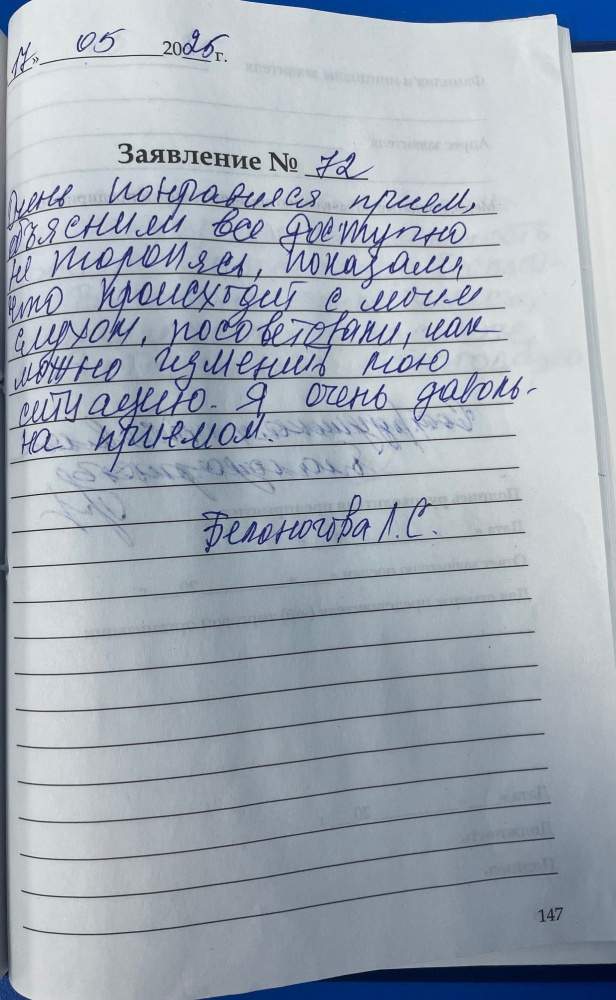 17» 05 2025 г.
Заявление № 72
Очень понравился прием,
объяснили все доступно
не торопясь, показали,
что происходит с моим
слухом, посоветовали, как
можно изменить мою
ситуацию. Я очень даволь-
на приемом.
Белоногова Л.С.
147